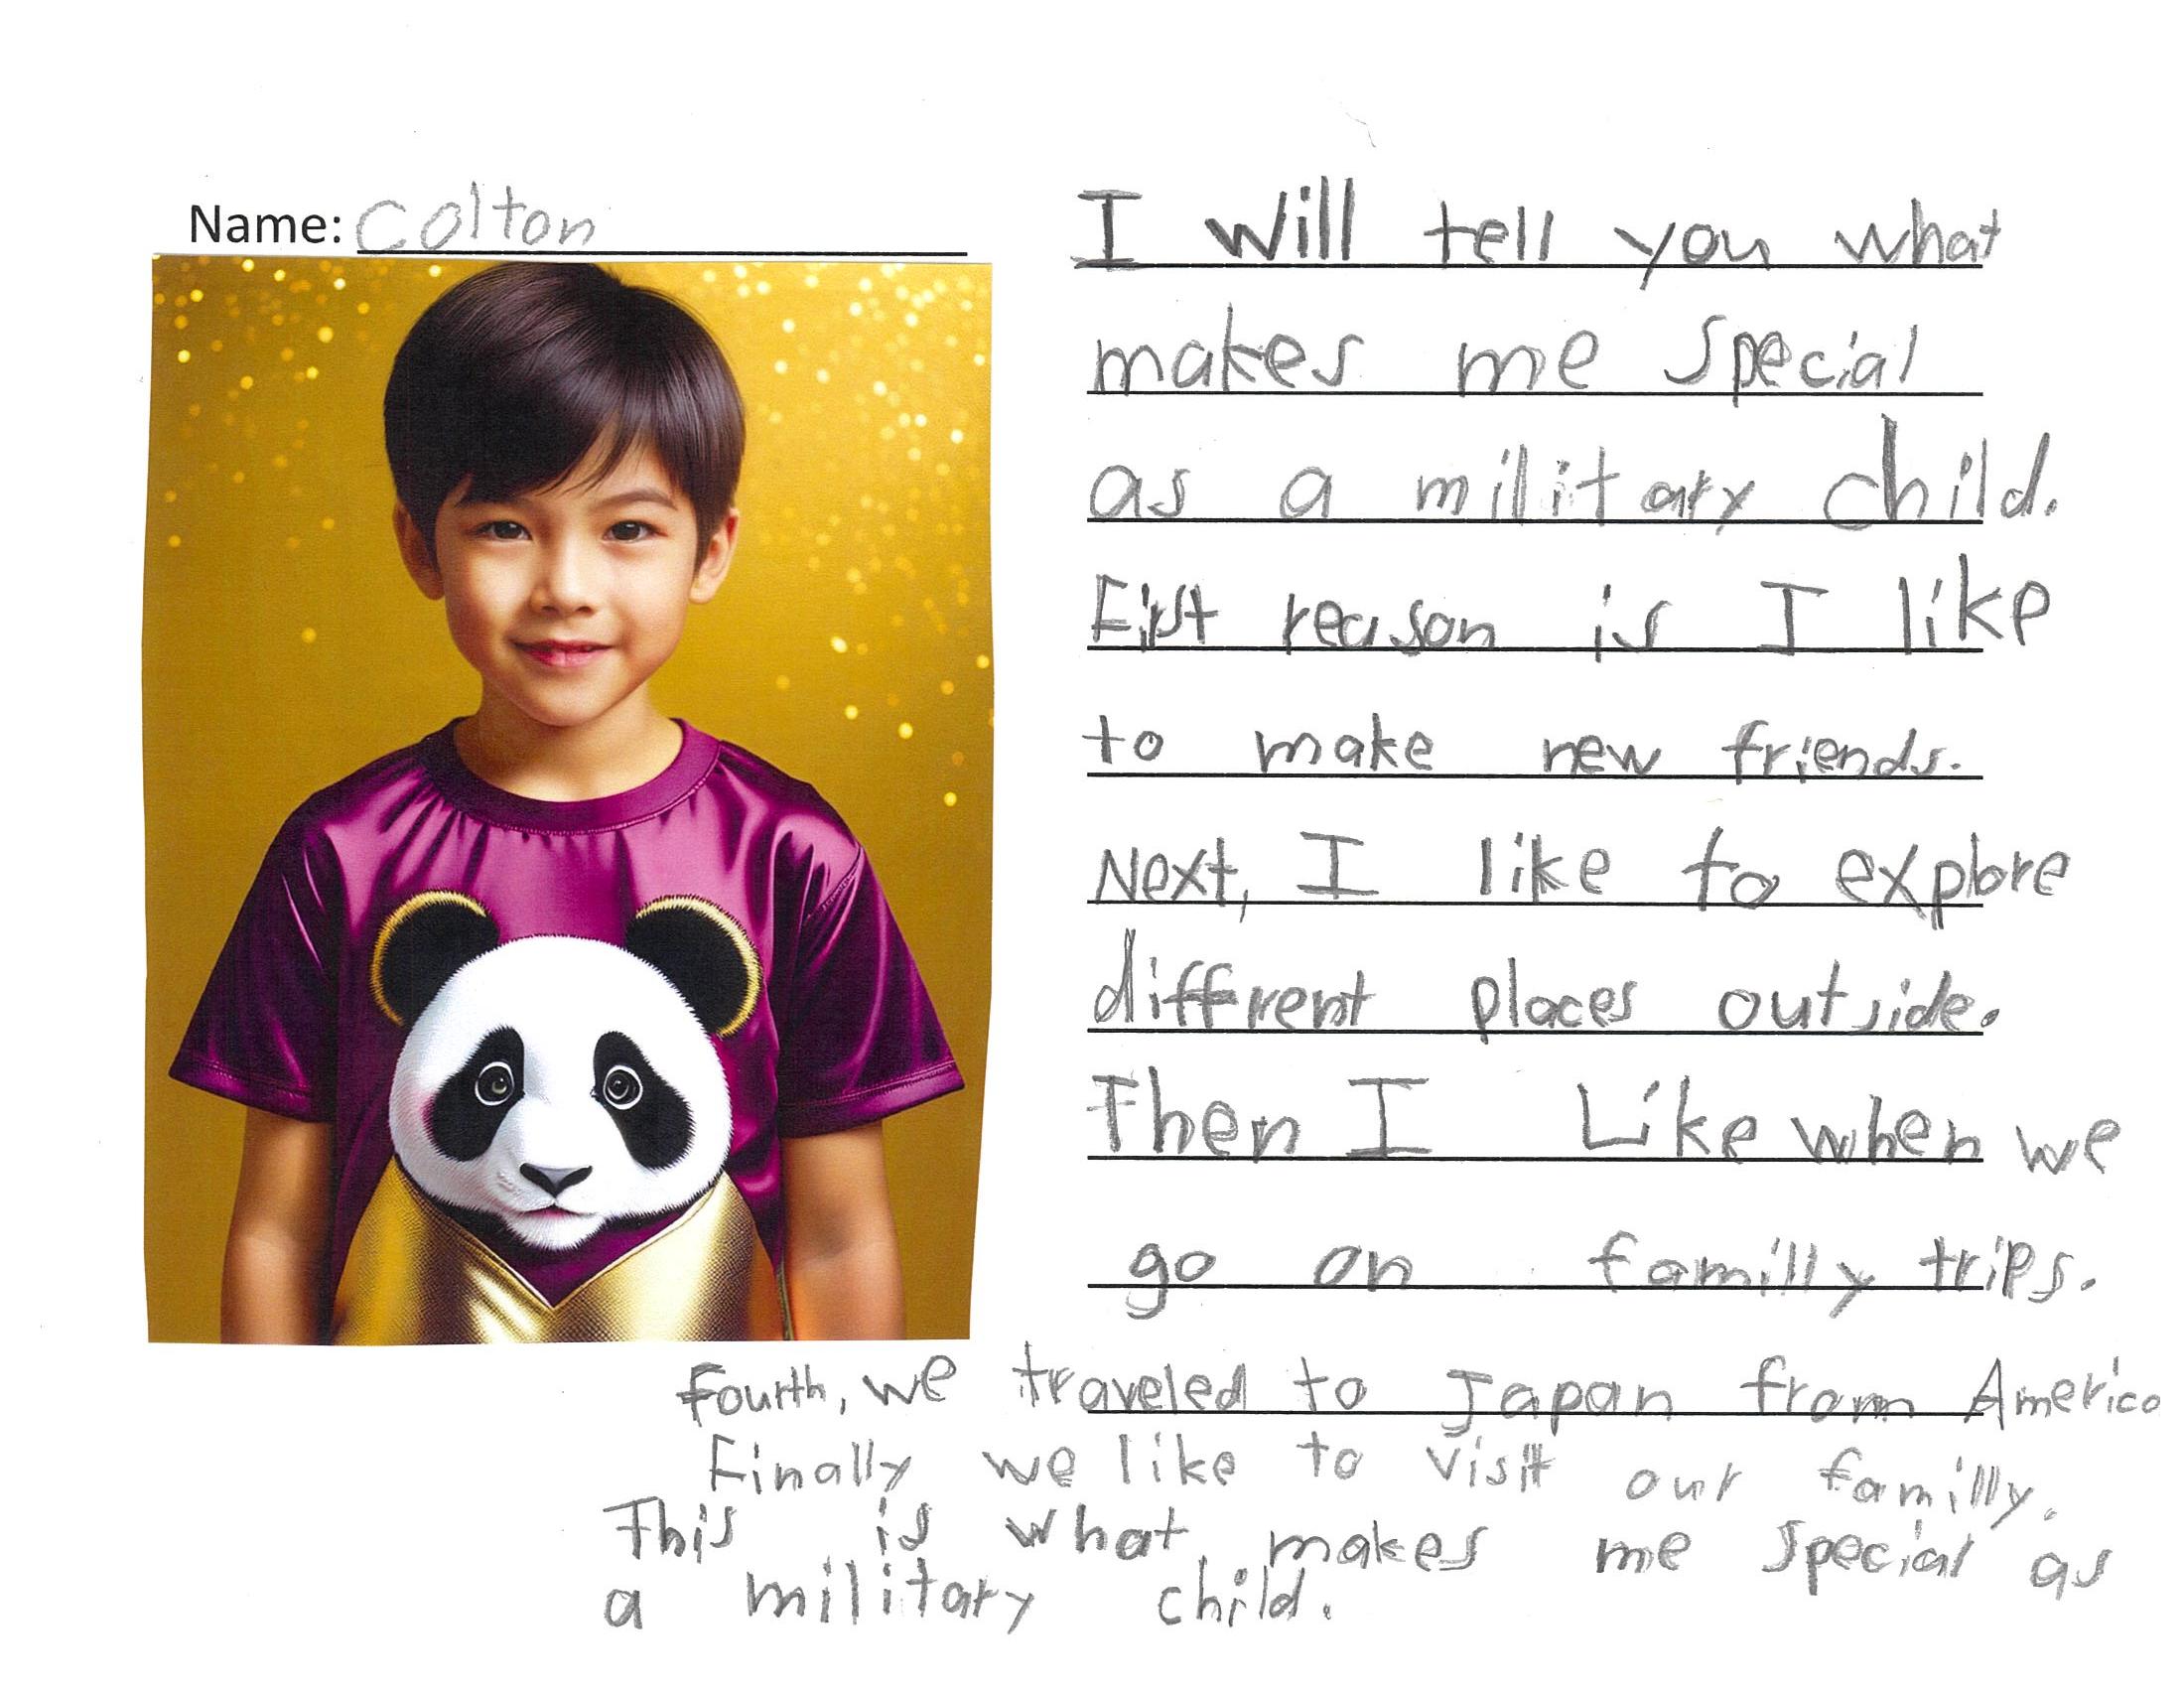 Name: Colton
I will tell you what
makes me special
as a military child.
First reason is I like
to make new friends.
Next, I like to explore
diffrent places outside.
Then I Like when we
go on familly trips.
Fourth, we traveled to Japan from America
Finally we like to visit our familly.
This is what makes me special as
a military child.